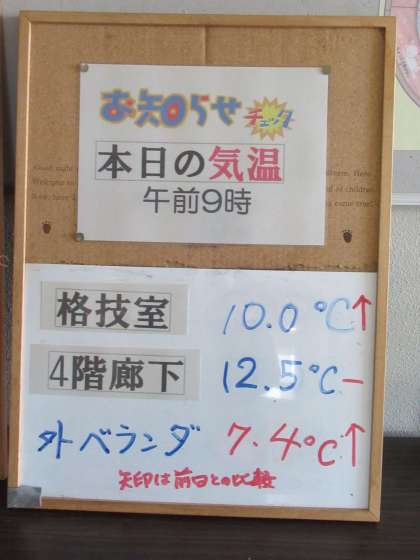 お知らせ
チェック
本日の気温
午前9時
格技室 10.0℃↑
4階廊下 12.5℃ー
外ベランダ 7.4℃↑
矢印は前日との比較